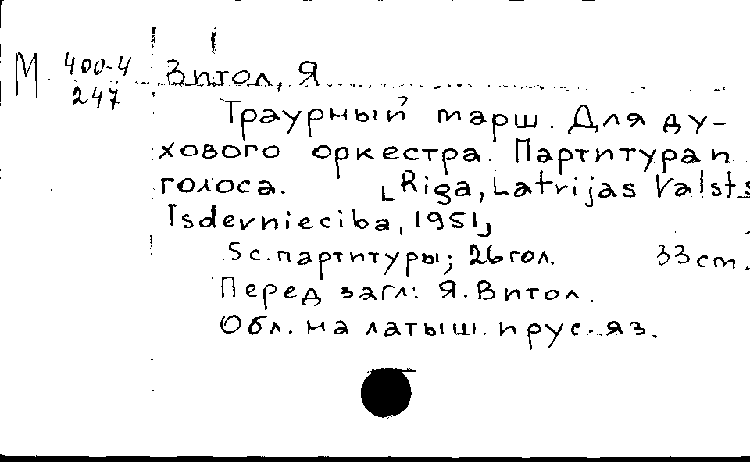 М 400-4
247
Витол, Я
Траурный марш. Для ду-
хового оркестра. Партитура и
голоса. [Riga, Latrijas Valsts
Isdevnieciba, 1951]
5 с. партитуры; 26 гол. 33 cm.
Перед загл: Я. Витол.
Обл. на латыш. и рус. яз.